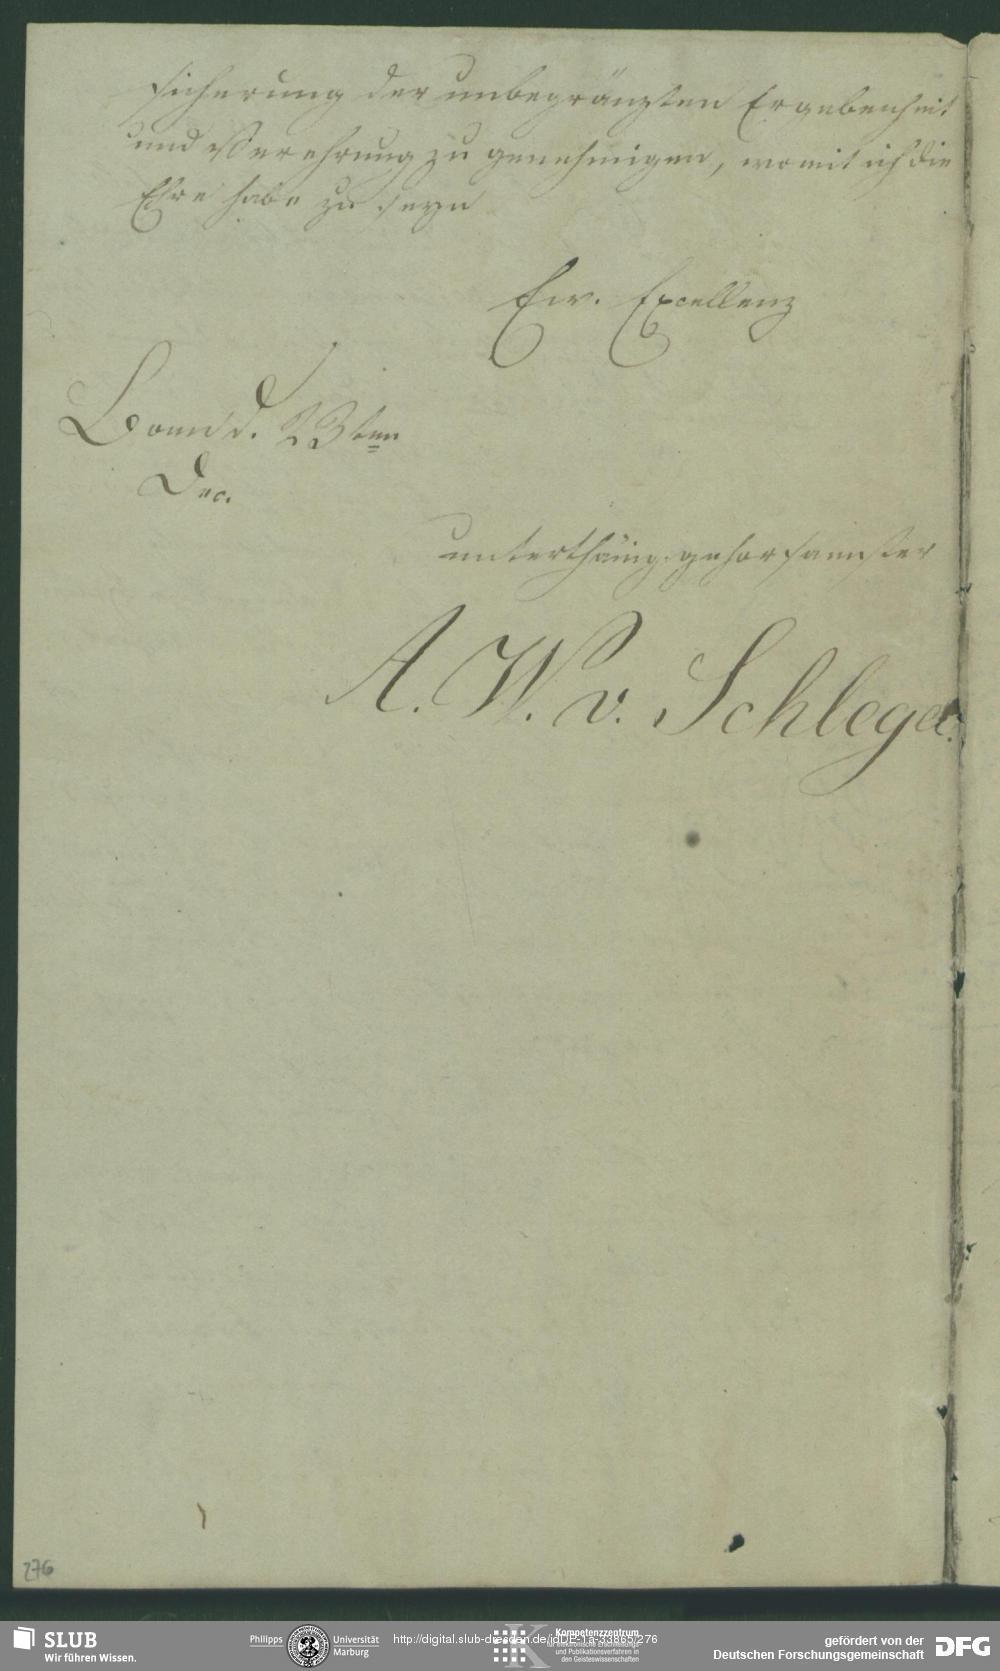 sicherung der unbegränzten Ergebenheit
und Verehrung zu genehmigen, womit ich die
Ehre habe zu seyn
Ew. Excellenz
Bonn d. 23ten
Dec.
unterthänig gehorsamster
A. W. v. Schlegel.
276
SLUB
Wir führen Wissen.
Philipps Universität
Marburg
http://digital.slub-dresden.de/idDE-1a-33865/276
Kompetenzzentrum
für elektronische Erschließungs-
und Publikationsverfahren in
den Geisteswissenschaften
gefördert von der
Deutschen Forschungsgemeinschaft
DFG